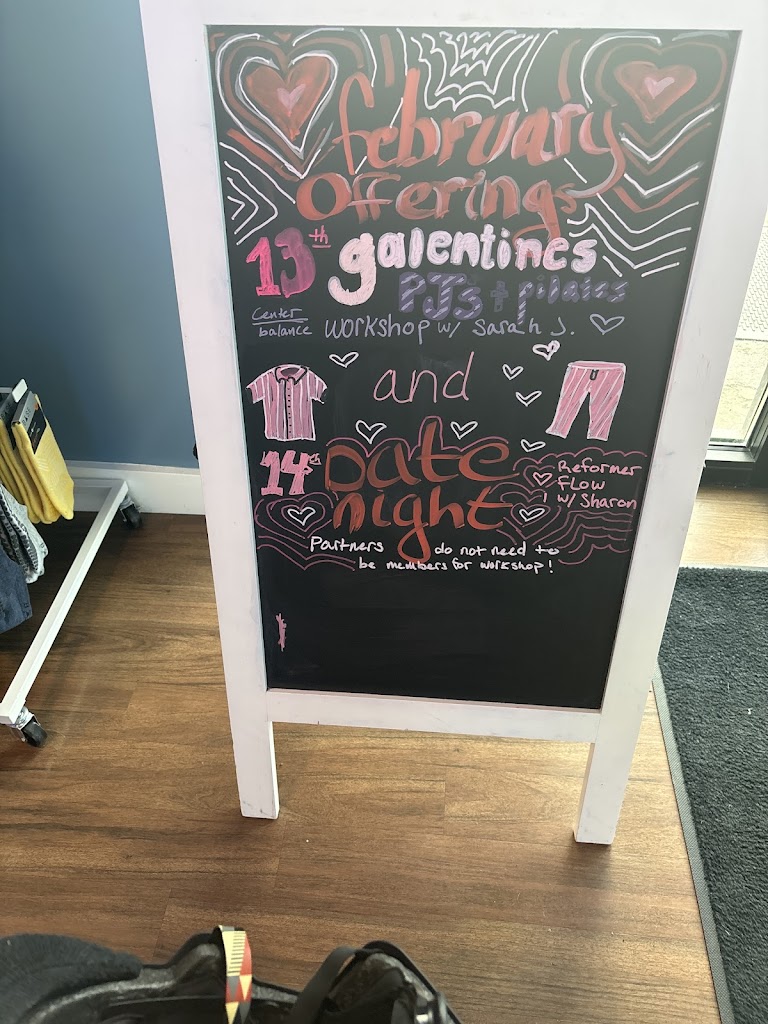 february
offerings
13th galentines
PJ's + pilates
center
balance workshop w/ Sarah J.
and
14th Date
night
Reformer
FLOW
w/ Sharon
Partners do not need to
be members for workshop!